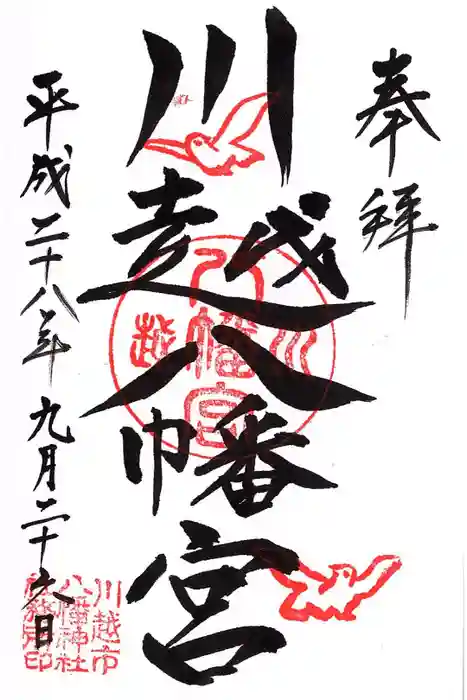 奉拝
川越八幡宮
平成二十八年九月二十六日
川越
八幡宮
川越市
八幡神社
社務所印